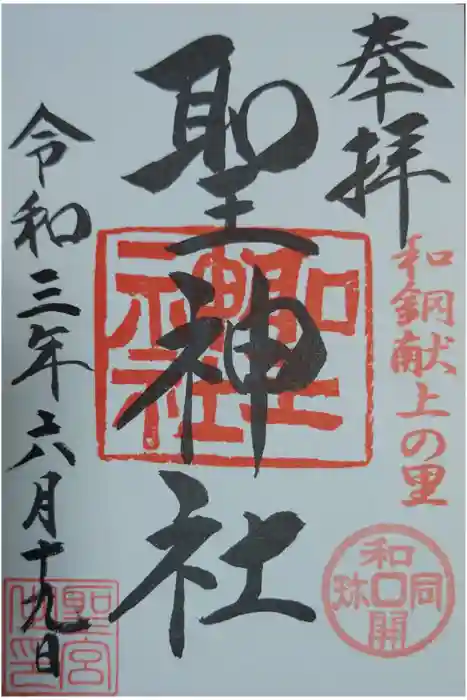 奉拝
和銅献上の里
和同開珎
聖神社
聖神社
令和三年六月十九日
聖宮